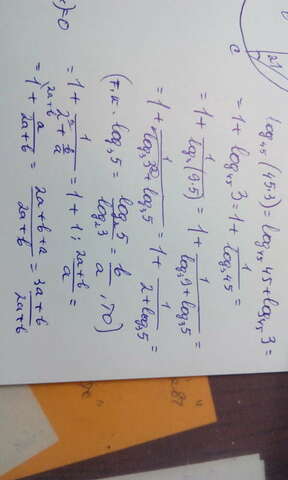 log₄₅(45·3) = log₄₅45 + log₄₅3 =
= 1 + log₄₅3 = 1 + 1/log₃45 =
= 1 + 1/log₃(9·5) = 1 + 1/(log₃9 + log₃5) =
= 1 + 1/(log₃3² + log₃5) = 1 + 1/(2 + log₃5) =
(т.к. log₃5 = log₂5/log₂3 = b/a, то)
= 1 + 1/(2 + b/a) = 1 + 1 : (2a+b)/a =
= 1 + a/(2a+b) = (2a+b+a)/(2a+b) = (3a+b)/(2a+b)